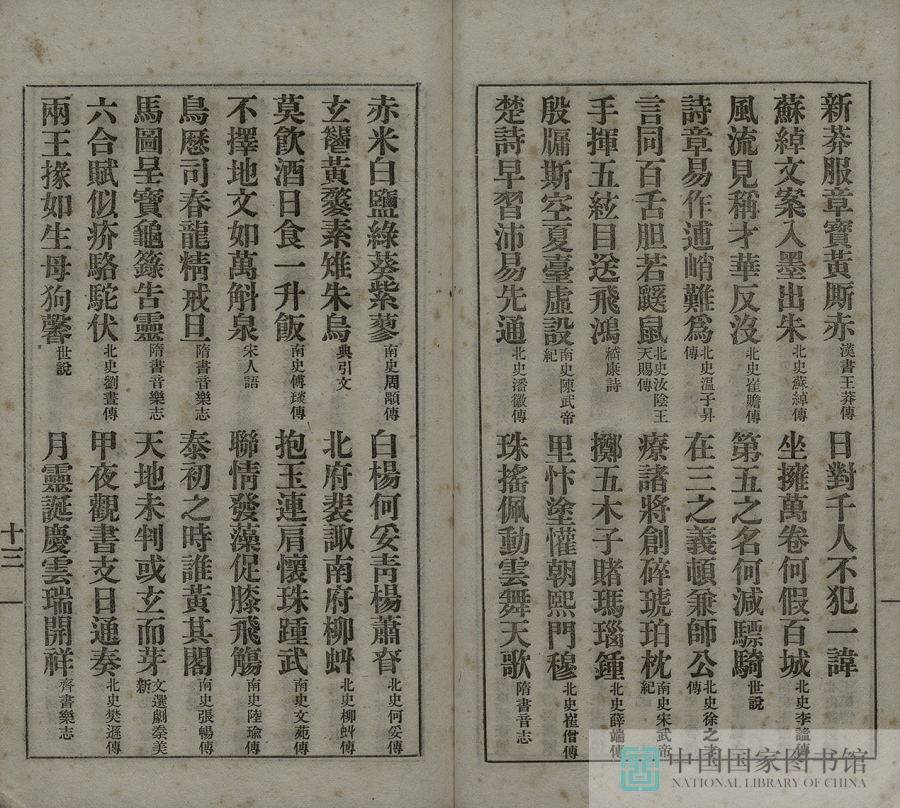 新莽服章寶黃廝赤 漢書王莽傳 日對千人不犯一諱
蘇綽文案入墨出朱 北史蘇綽傳 坐擁萬卷何假百城 北史李謐傳
風流見稱才華反沒 北史崔贍傳 第五之名何減驃騎 世說
詩章易作逋峭難爲 北史溫子昇傳 在三之義頓兼師公 北史徐之才傳
言同百舌胆若鼷鼠 北史汝陰王天賜傳 療諸將創碎琥珀枕 南史宋武帝紀
手揮五絃目送飛鴻 嵇康詩 擲五木子賭瑪瑙鍾 北史薛端傳
殷牖斯空夏臺虛設 南史陳武帝紀 里忭塗懽朝熙門穆 北史崔僧傳
楚詩早習沛易先通 北史潘徽傳 珠搖佩動雲舞天歌 隋書音志
赤米白鹽綠葵紫蓼 南史周顒傳 白楊何妥靑楊蕭眘 北史何妥傳
玄鬯黃婺素雉朱烏 典引文 北府裴諏南府柳虯 北史柳虯傳
莫飮酒日食一升飯 南史傅琰傳 抱玉連肩懷珠踵武 南史文苑傳
不擇地文如萬斛泉 宋人語 聯情發藻促膝飛觴 南史陸瑜傳
鳥曆司春龍精戒旦 隋書音樂志 泰初之時誰黃其閣 南史張暢傳
馬圖呈寶龜籙吿靈 隋書音樂志 天地未判或玄而芽 文選劇秦美新
六合賦似疥駱駝伏 北史劉晝傳 甲夜觀書支日通奏 北史樊遜傳
兩王掾如生母狗馨 世說 月靈誕慶雲瑞開祥 齊書樂志
十三
中国国家图书馆
NATIONAL LIBRARY OF CHINA